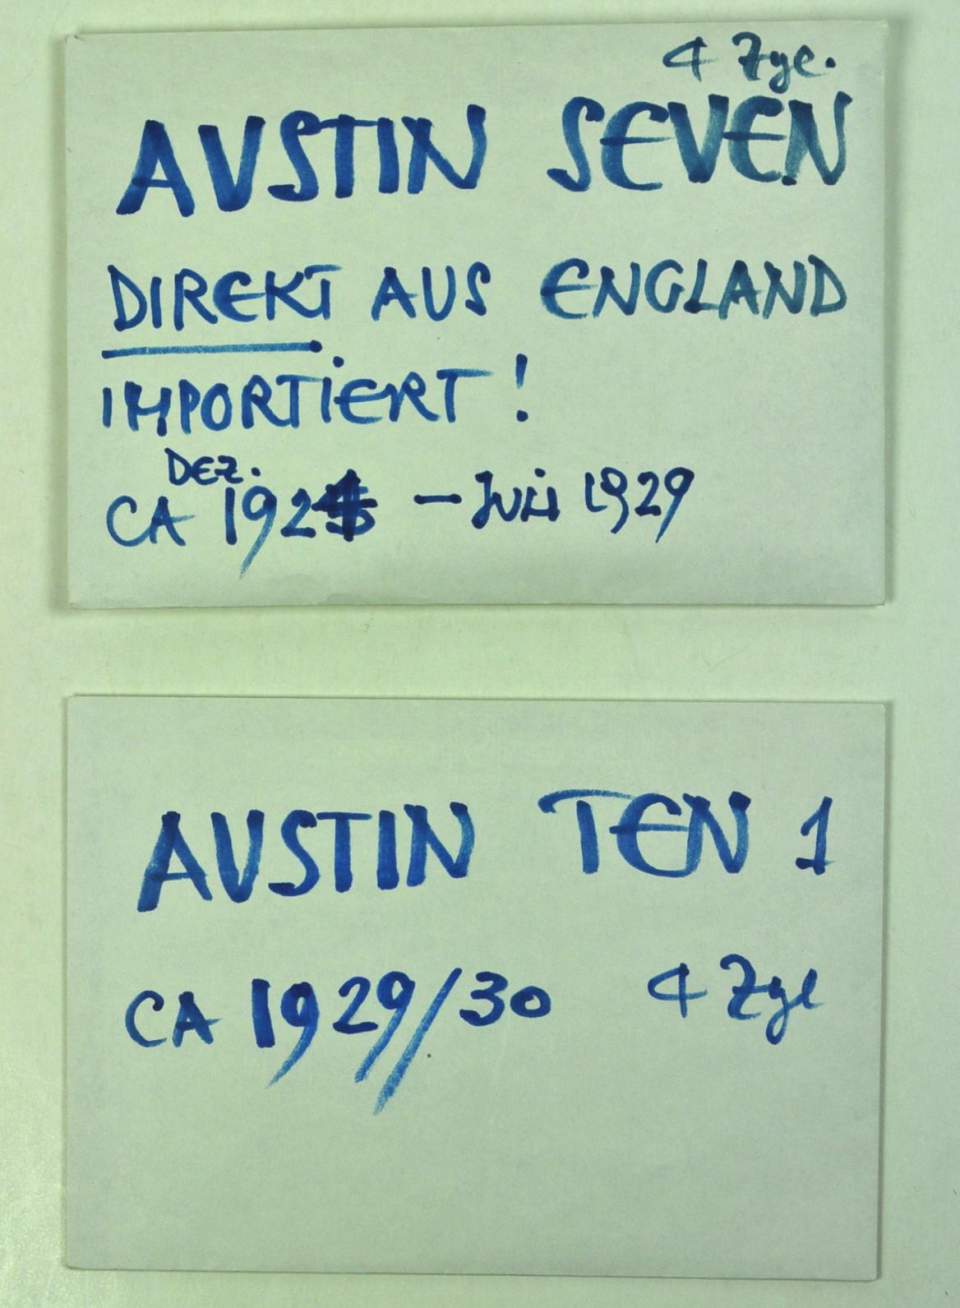 4 Zyl.
AUSTIN SEVEN
DIREKT AUS ENGLAND
IMPORTIERT!
DEZ.
CA - Juli 1929
AUSTIN TEN 1
CA 1929/30 4 Zyl